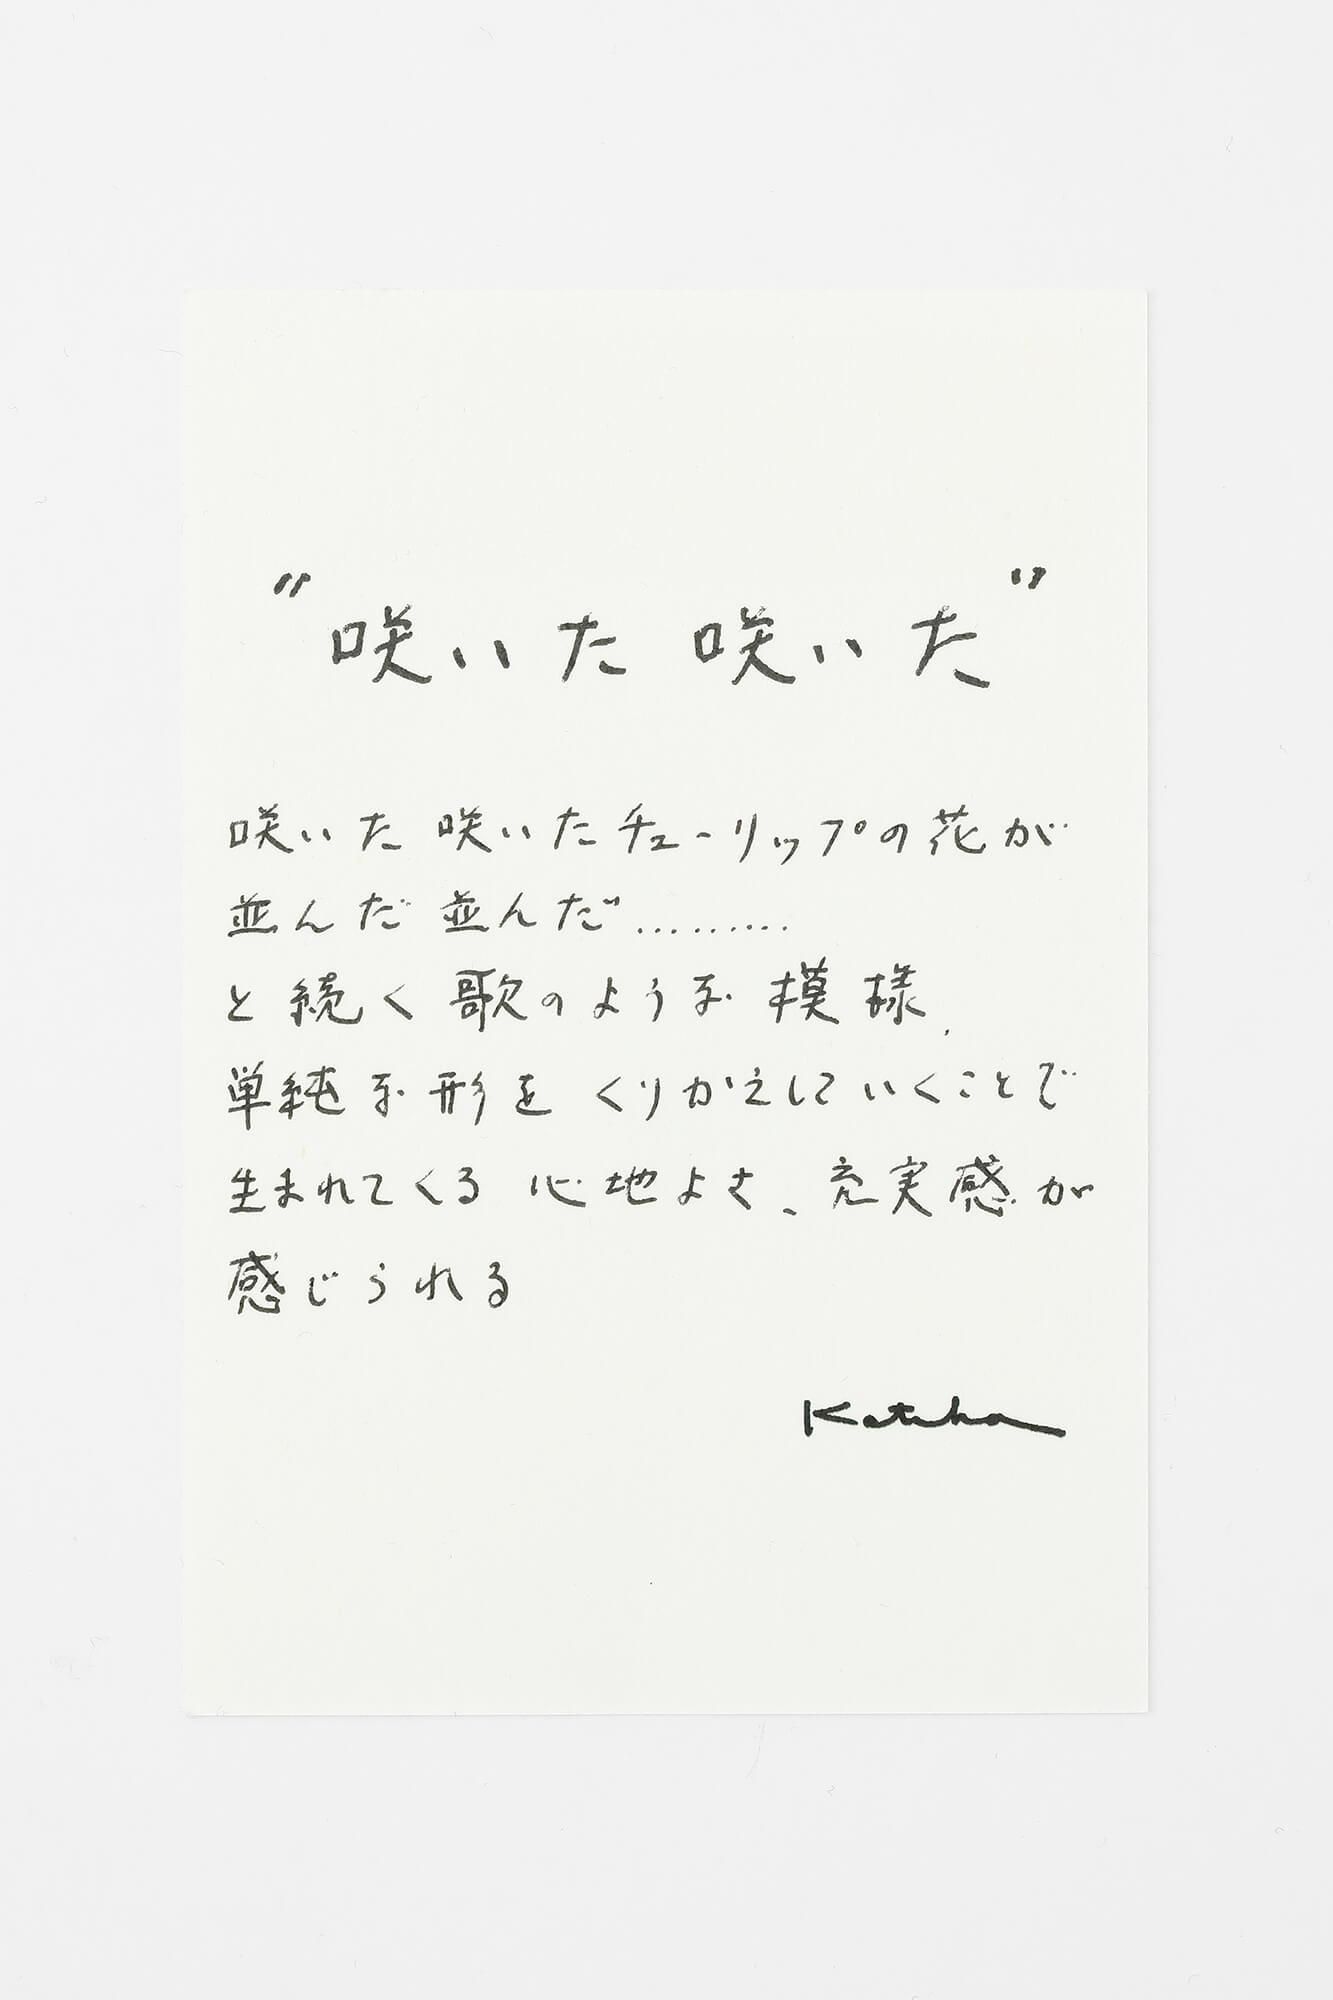 "咲いた 咲いた"
咲いた 咲いたチューリップの花が
並んだ 並んだ………
と続く歌のような模様、
単純な形を くりかえしていくことで
生まれてくる 心地よさ、充実感が
感じられる